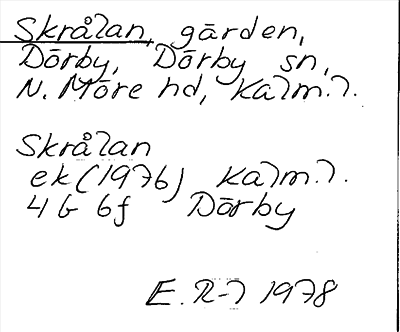 Skrålan, gården,
Dörby, Dörby sn,
N. Möre hd, Kalm.l.
Skrålan
ek (1976) Kalm.l.
4 G 6f Dörby
E. R-l 1978